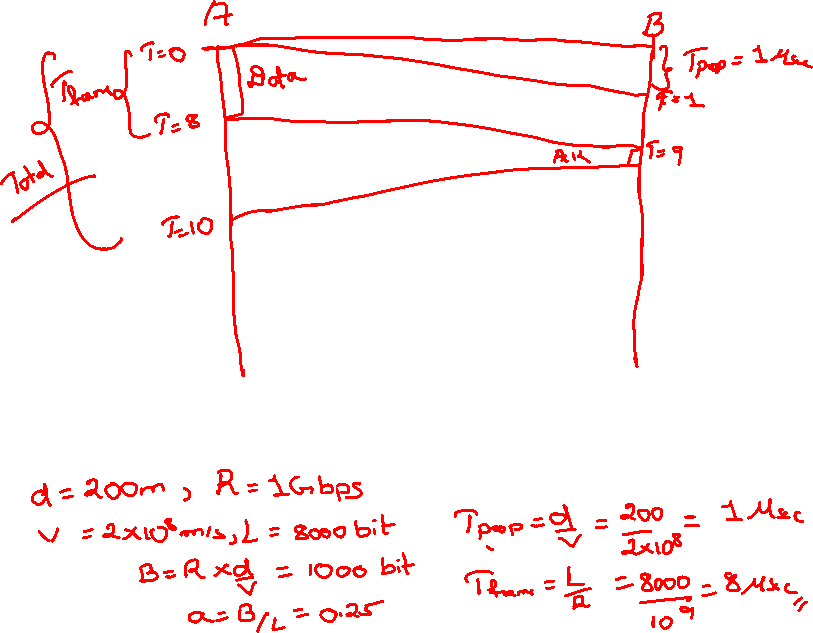 A
B
T=0
Tprop = 1 Msec
Tframe
Data
T=1
T=8
AK
T=9
Total
T=10
d = 200m , R = 1Gbps
V = 2×10⁸ m/s, L = 8000 bit
B = R × d/V = 1000 bit
a = B/L = 0.25
Tprop = d/V = 200/2×10⁸ = 1 Msec
Tframe = L/R = 8000/10⁹ = 8 Msec